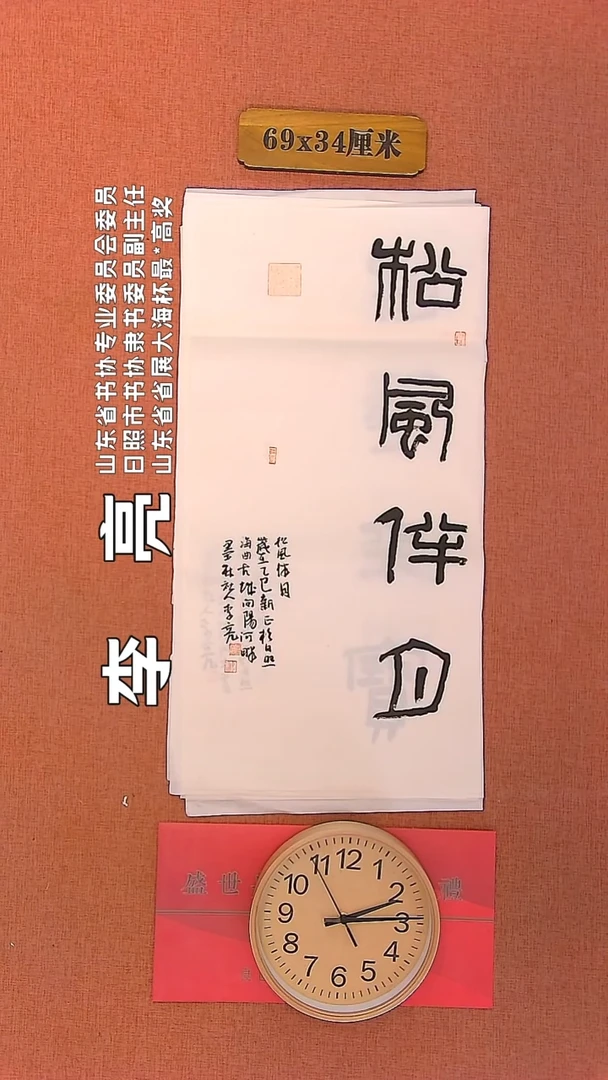 69x34厘米
松風伴月
松風伴月
歲在乙巳新正於日照
海曲古城向陽河畔
李亮
山东省书协专业委员会委员
日照市书协隶书委员副主任
山东省省展大海杯最*高奖
李亮
盛世
禮
12
1
2
3
4
5
6
7
8
9
10
11